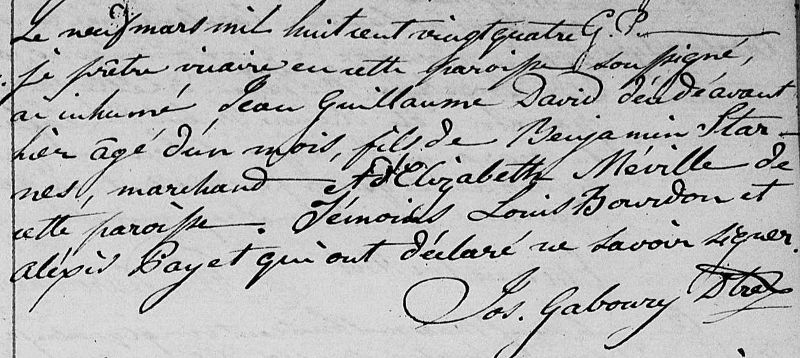 Le neuf mars mil huit cent vingt quatre G. P.
je prêtre vicaire en cette paroisse soussigné,
ai inhumé Jean Guillaume David décédé avant
hier âgé d'un mois, fils de Benjamin Star-
nes, marchand et d'Elizabeth Méville de
cette paroisse. Témoins Louis Bourdon et
aléxis Payet qui ont déclaré ne savoir signer.
Jos. Gaboury Ptre